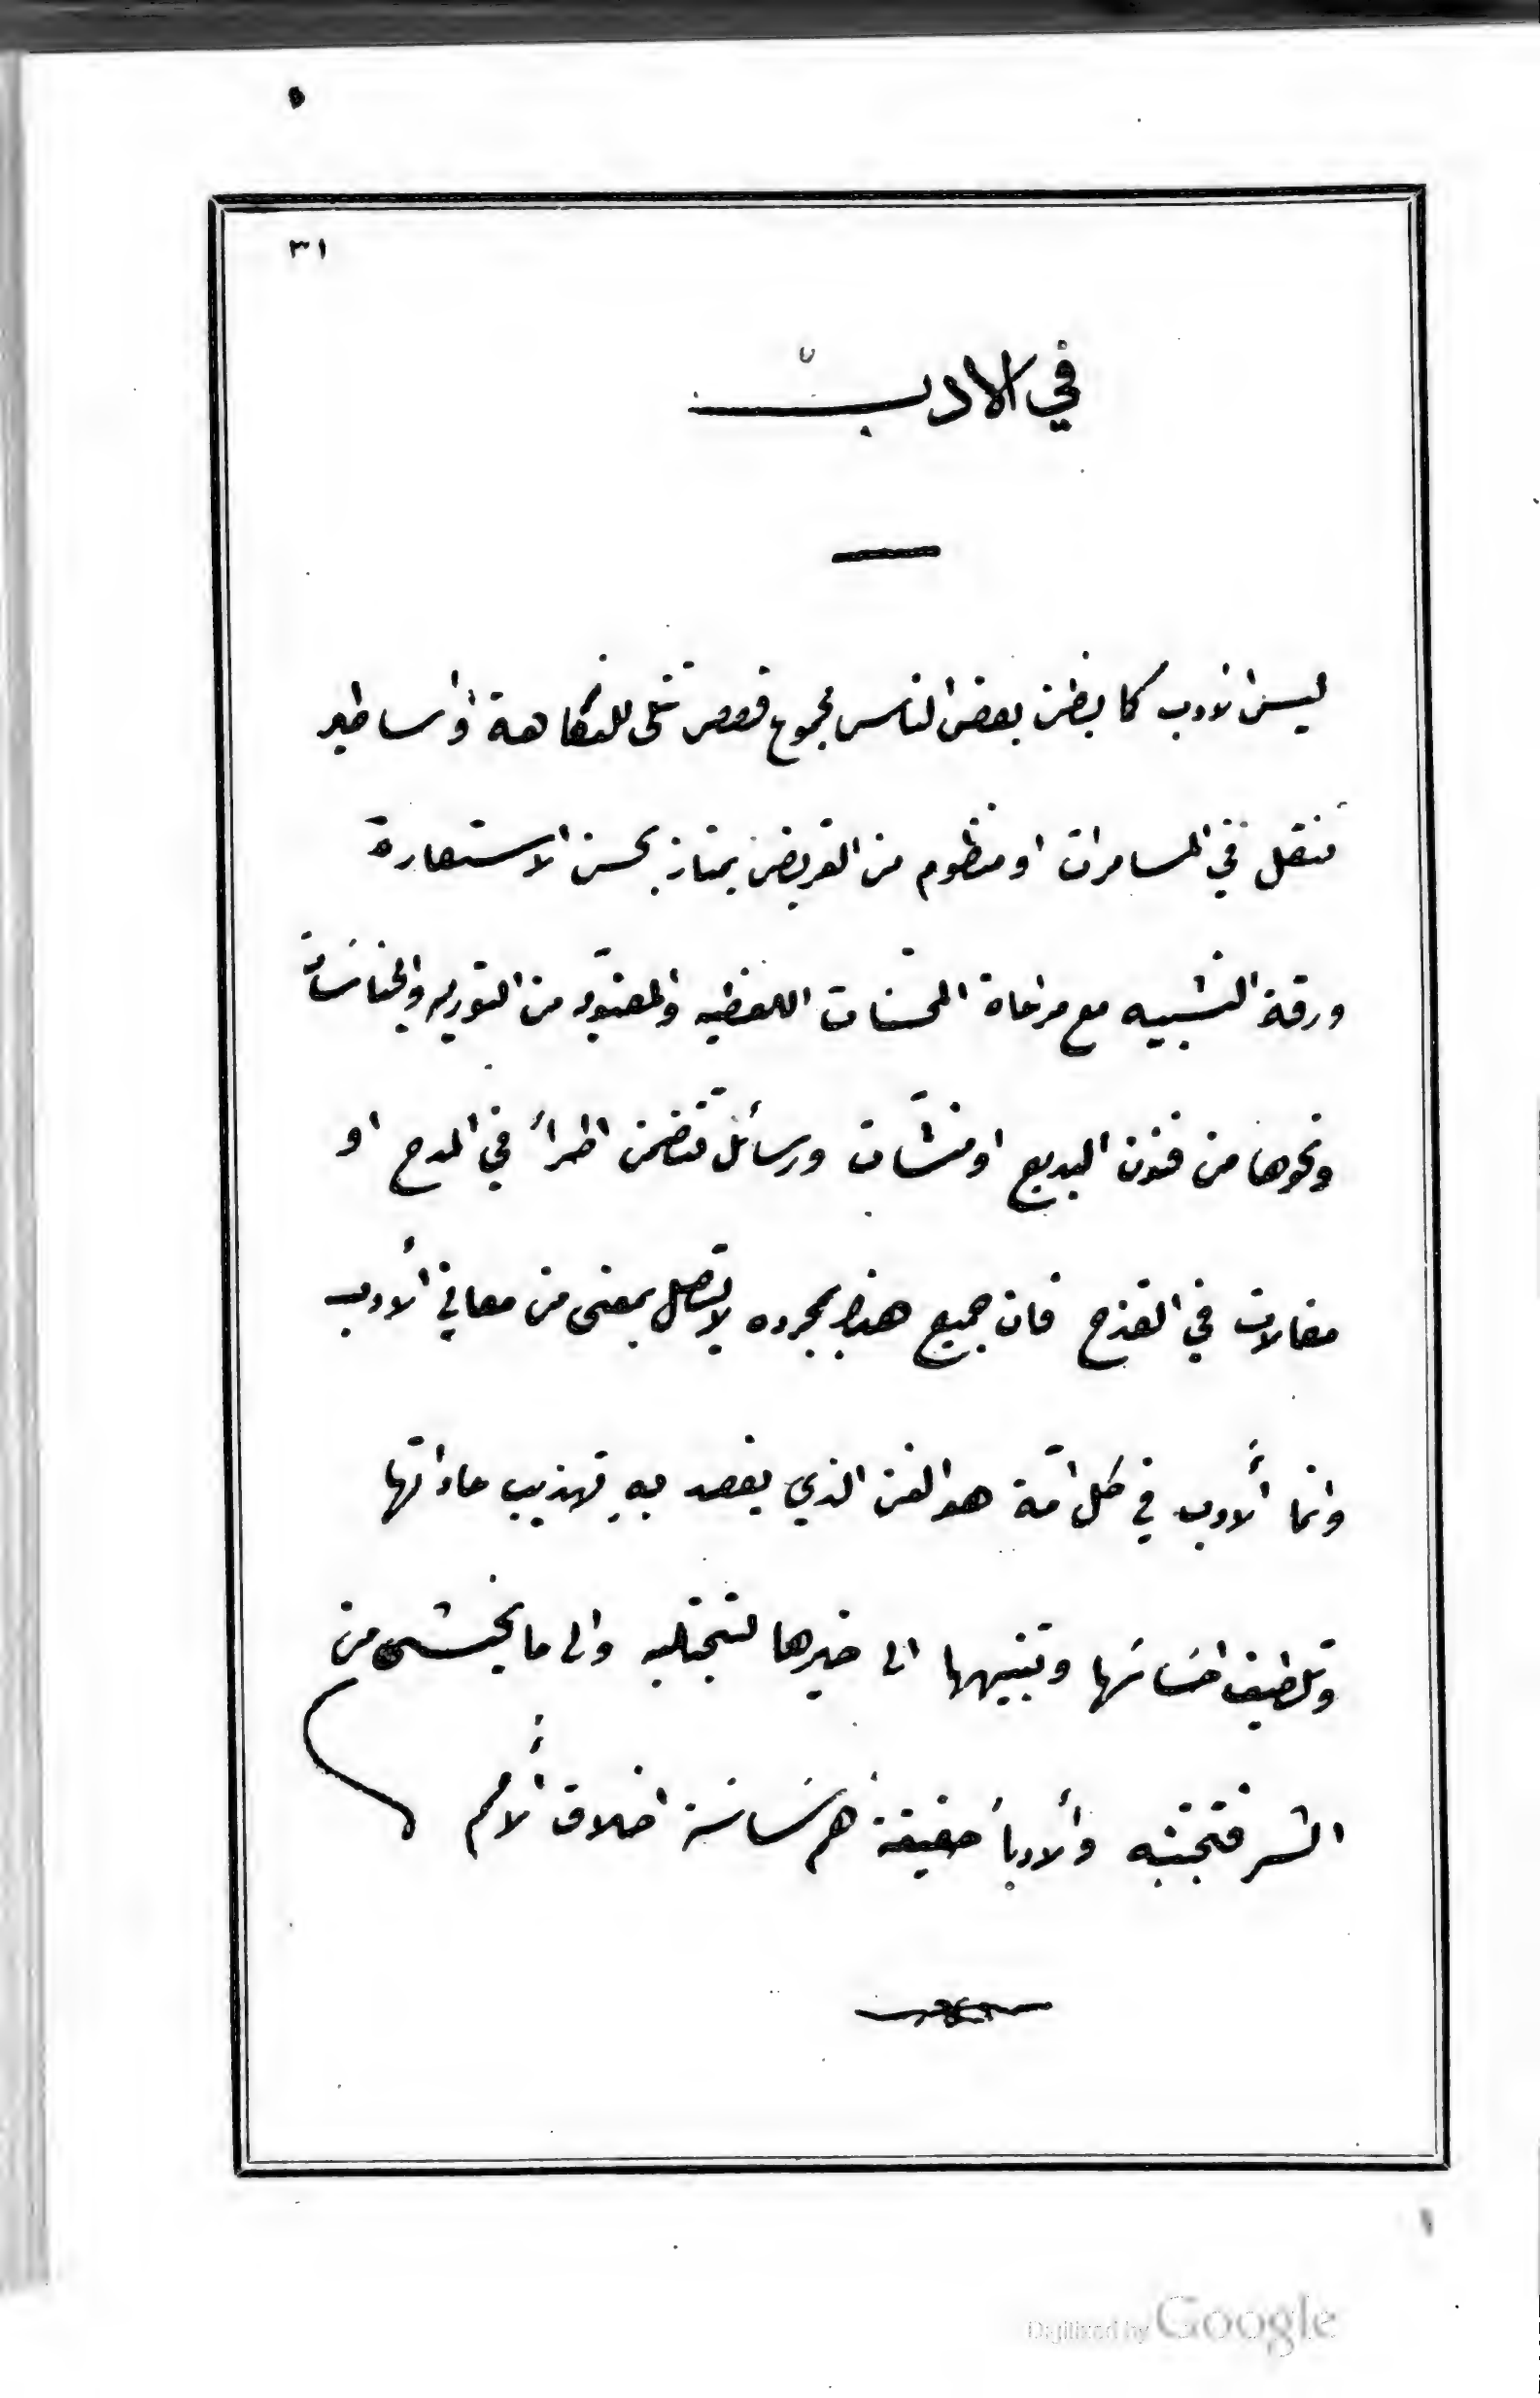 ٣١
في الادب
ليس الادب كما يظن بعض الناس مجموع قصص تتلى للفكاهة او اساطير
تنقل في المسامرات او منظوم من القريض يمتاز بحسن الاستعارة
ورقة التشبيه مع مراعاة المحسّنات اللفظيه والمعنويّه من التوريه والجناسات
ونحوها من فنون البديع او منشّات ورسائل تتضمن اطراءً في المدح او
مقالات في القدح فان جميع هذا بمجرده لا يتصل بمعنى من معاني الأدب
وانما الأدب في كل امّة هو الفن الذي يقصد بهِ تهذيب عاداتها
وتلطيف احساسها وتنبيهها الى خيرها لتجتلبه والى ما يخشى من
الشر فتجتنبه والأدباء حقيقة هم ساسة اخلاق الأمم
Digitized by Google